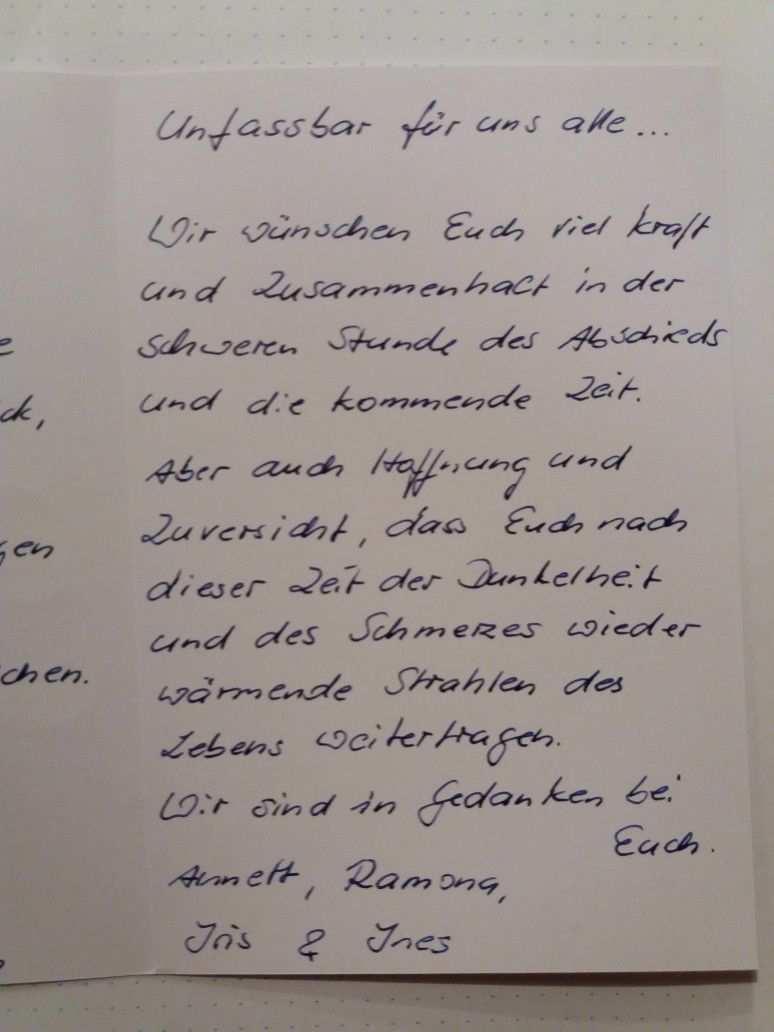 Unfassbar für uns alle...
Wir wünschen Euch viel Kraft
und Zusammenhalt in der
schweren Stunde des Abschieds
und die kommende Zeit.
Aber auch Hoffnung und
Zuversicht, dass Euch nach
dieser Zeit der Dunkelheit
und des Schmerzes wieder
wärmende Strahlen des
Lebens weitertragen.
Wir sind in Gedanken bei
Euch.
Annett, Ramona,
Iris & Ines